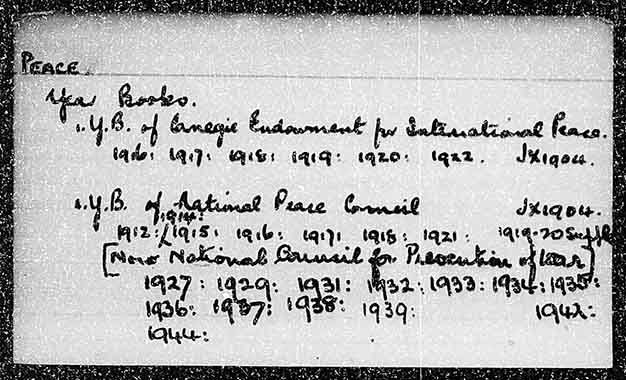 PEACE.
Year Books.
1. Y.B. of Carnegie Endowment for International Peace.
1916: 1917: 1918: 1919: 1920: 1922. JX1904.
2. Y.B. of National Peace Council JX1904.
1914:
1912:/1915: 1916: 1917: 1918: 1921: 1919-20 Suppl
[Now National Council for Prevention of War]
1927: 1929: 1931: 1932: 1933: 1934: 1935:
1936: 1937: 1938: 1939: 1942:
1944: